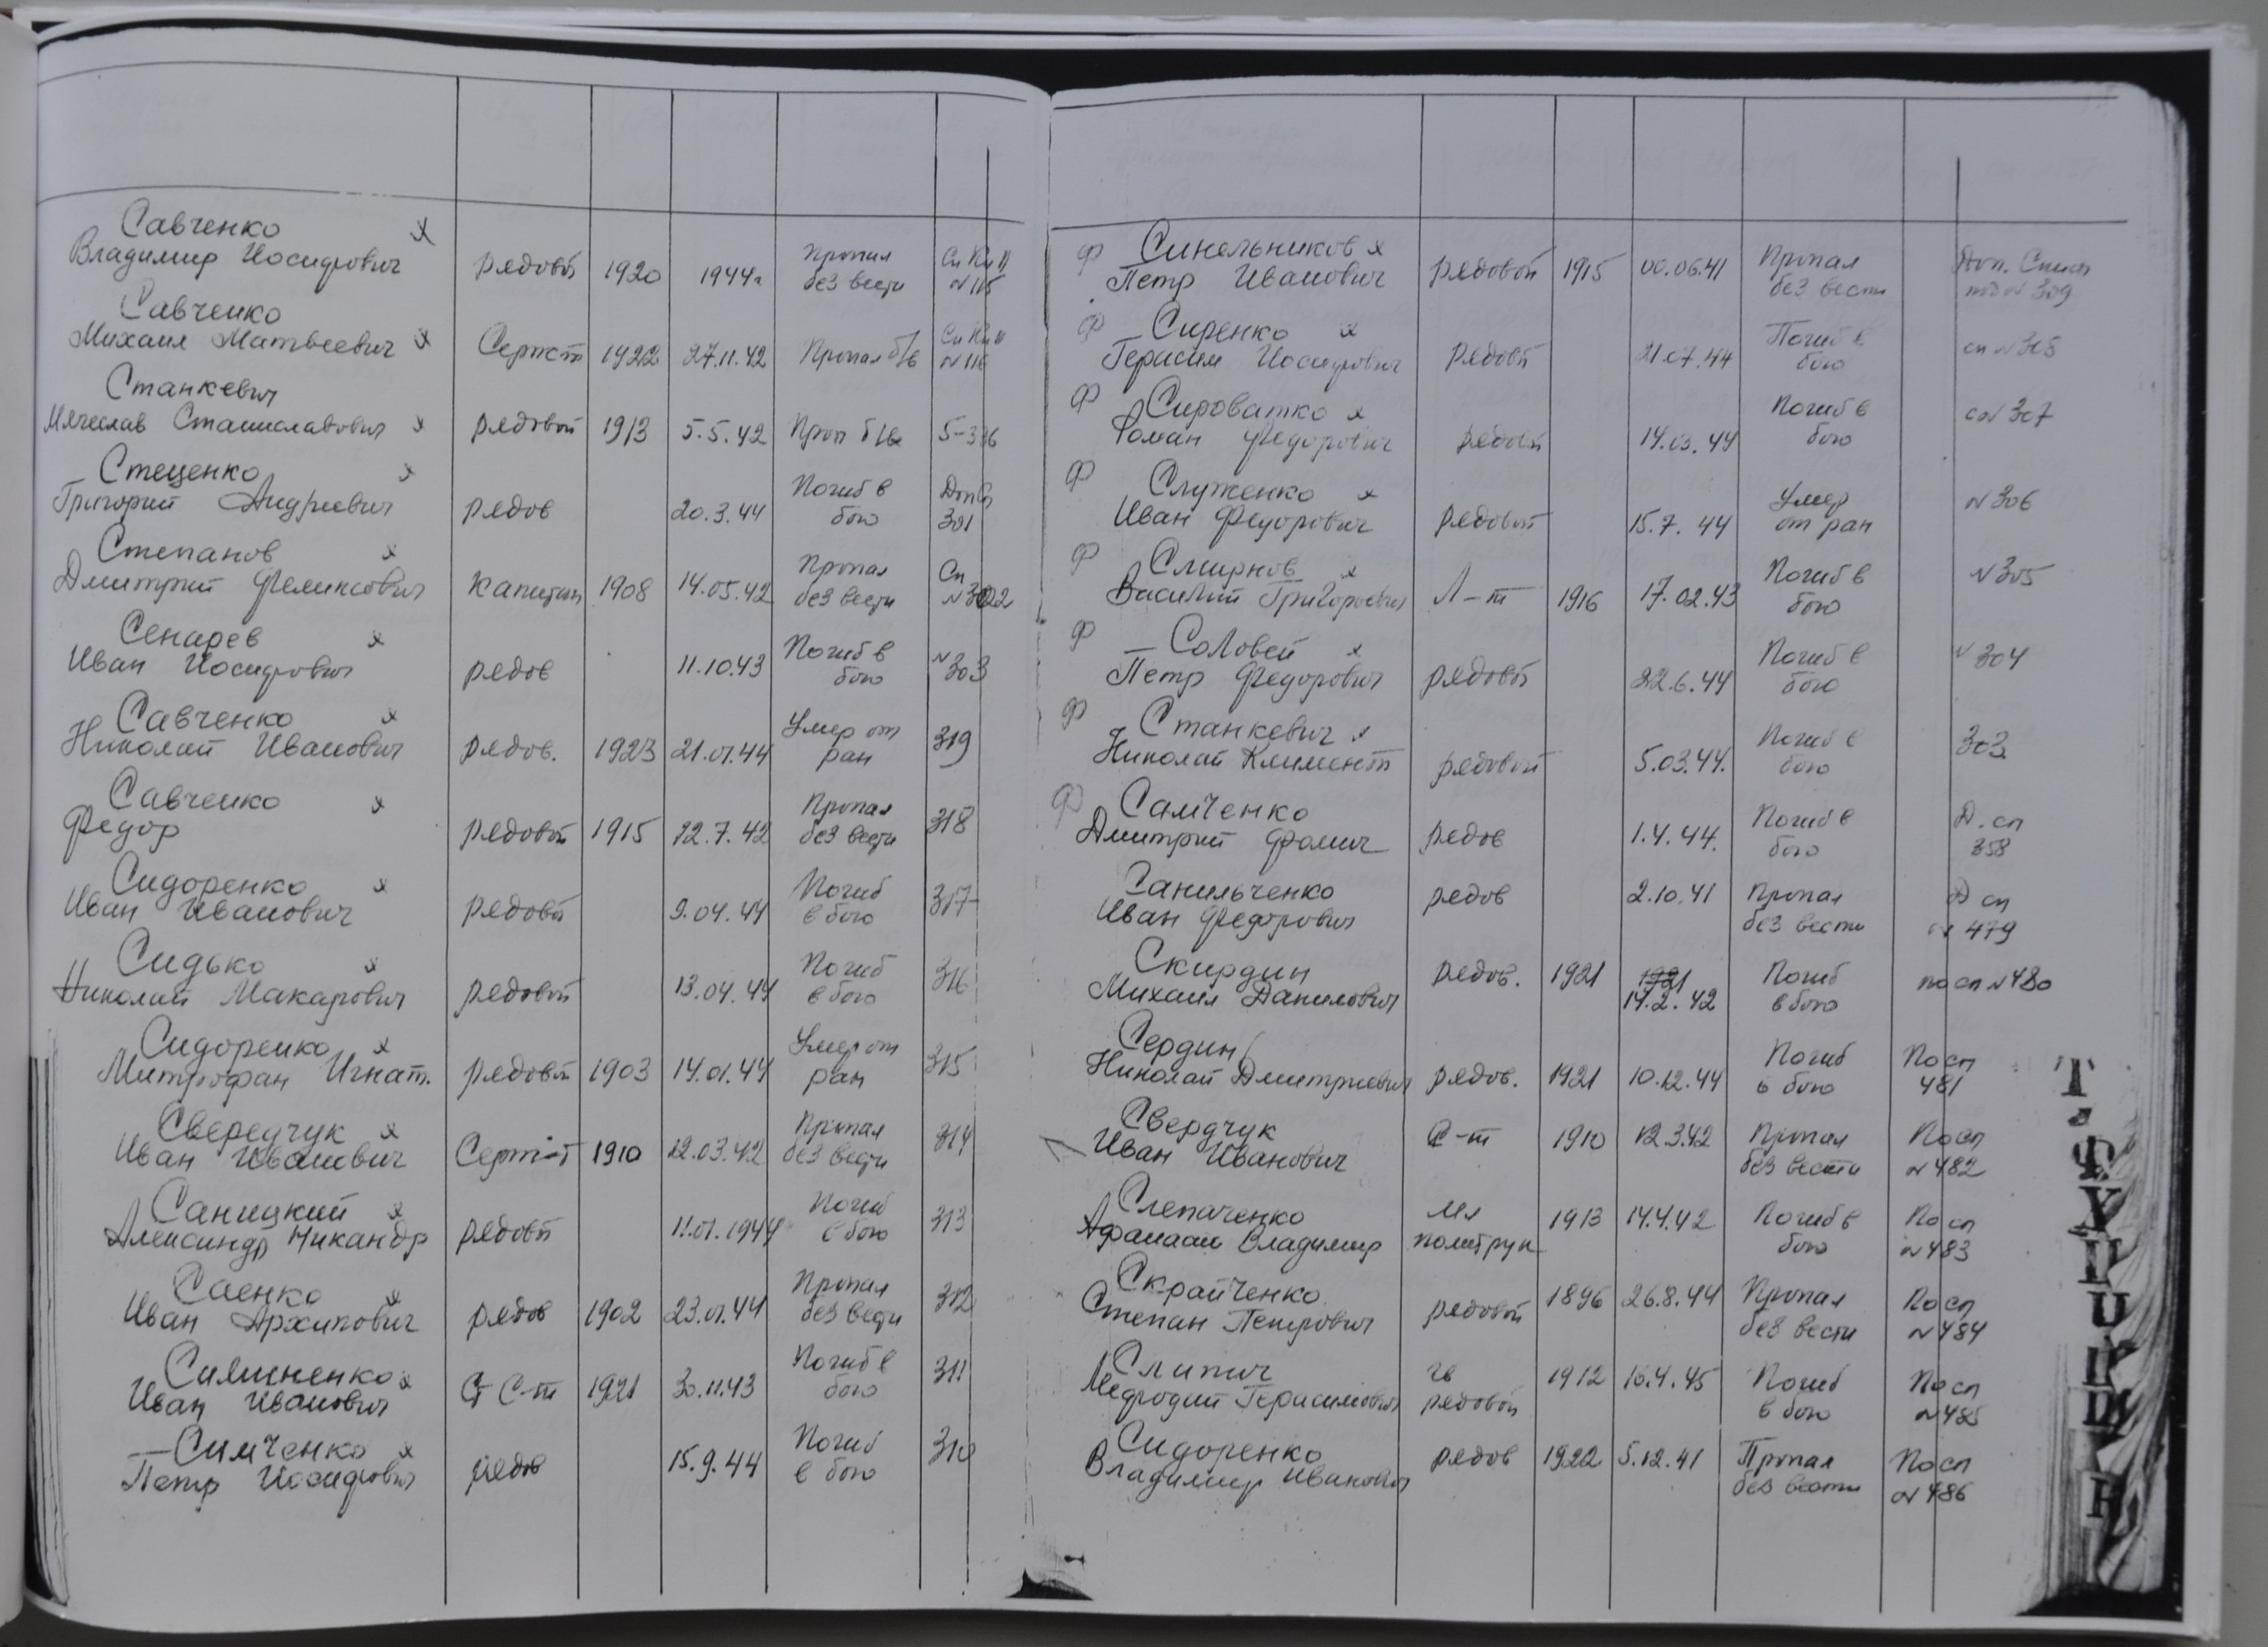 Савченко х
Владимир Иосифович рядовой 1920 1944г Пропал без вести Сп Кн II N 115
Савченко
Михаил Матвеевич х Серж-т 1922 27.11.42 Пропал б/в Сп Кн II N 116
Станкевич
Мячеслав Станиславович х рядовой 1913 5.5.42 Проп б/в 5-336
Стеценко х
Григорий Андреевич рядов 20.3.44 Погиб в бою Доп Сп 301
Степанов х
Дмитрий Феликсович Капитан 1908 14.05.42 Пропал без вести Сп
Сенарев х
Иван Иосифович рядов 11.10.43 Погиб в бою N 303
Савченко х
Николай Иванович рядов. 1923 21.01.44 Умер от ран 319
Савченко х
Федор рядовой 1915 22.7.42 Пропал без вести 318
Сидоренко х
Иван Иванович рядовой 9.04.44 Погиб в бою 317
Сидько х
Николай Макарович рядовой 13.04.44 Погиб в бою 316
Сидоренко х
Митрофан Игнат. рядовой 1903 14.01.44 Умер от ран 315
Свередчук х
Иван Иванович Серж-т 1910 12.03.42 Пропал без вести 314
Саницкий х
Александр Никандр рядовой 11.01.1944 Погиб в бою 313
Саенко х
Иван Архипович рядов 1902 23.01.44 Пропал без вести 312
Симоненко х
Иван Иванович Ст С-т 1921 30.11.43 Погиб в бою 311
Симченко х
Петр Иосифович рядов 15.9.44 Погиб в бою 310
Ф Синельников х
Петр Иванович рядовой 1915 00.06.41 Пропал без вести Доп. Список N 309
Ф Сиренко х
Герасим Иосифович рядовой 21.07.44 Погиб в бою сп N 308
Ф Сироватко х
Роман Федорович рядовой 14.03.44 Погиб в бою 307
Ф Служенко х
Иван Федорович рядовой 15.7.44 Умер от ран N 306
Ф Смирнов х
Василий Григорович Л-т 1916 17.02.43 Погиб в бою N 305
Ф Соловей х
Петр Федорович рядовой 22.6.44 Погиб в бою N 304
Ф Станкевич х
Николай Климент рядовой 5.03.44. Погиб в бою 303
Ф Самченко
Дмитрий Фомич рядов 1.4.44. Погиб в бою Д. сп 358
Санильченко
Иван Федорович рядов 2.10.41 Пропал без вести Д сп N 479
Скирдин
Михаил Данилович рядов. 1921 1921 14.2.42 Погиб в бою по сп N 480
Сердин
Николай Дмитриевич рядов. 1921 10.12.44 Погиб в бою По сп 481
Свердчук
Иван Иванович С-т 1910 12.3.42 Пропал без вести По сп N 482
Слепаченко
Афанасий Владимир Мл политрук 1913 14.4.42 Погиб в бою По сп N 483
Скрайченко
Степан Петрович рядовой 1896 26.8.44 Пропал без вести По сп N 484
Слипич
Мефодий Герасимович гв рядовой 1912 16.4.45 Погиб в бою По сп N 485
Сидоренко
Владимир Иванович рядов 1922 5.12.41 Пропал без вести По сп N 486